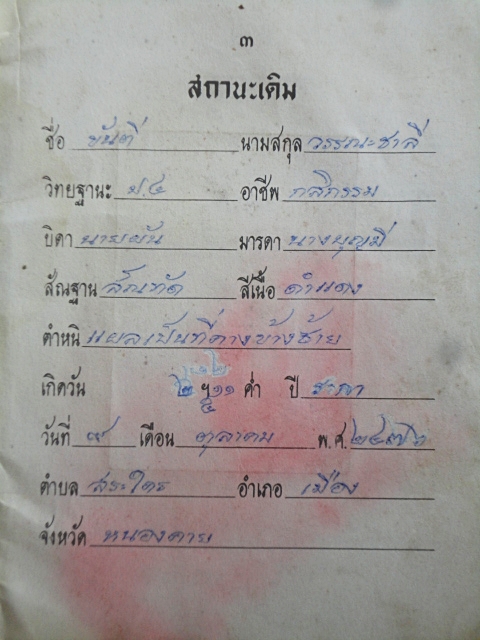 ๓
สถานะเดิม
ชื่อ ขันตี นามสกุล วรรณะชาลี
วิทยฐานะ ป.๔ อาชีพ กสิกรรม
บิดา นายผัน มารดา นางบุญมี
สัณฐาน สันทัด สีเนื้อ ดำแดง
ตำหนิ แผลเป็นที่คางข้างซ้าย
เกิดวัน ๒ ฯ ๑๑ ค่ำ ปี ระกา
๔
วันที่ ๙ เดือน ตุลาคม พ.ศ. ๒๔๗๖
ตำบล สระใคร อำเภอ เมือง
จังหวัด หนองคาย